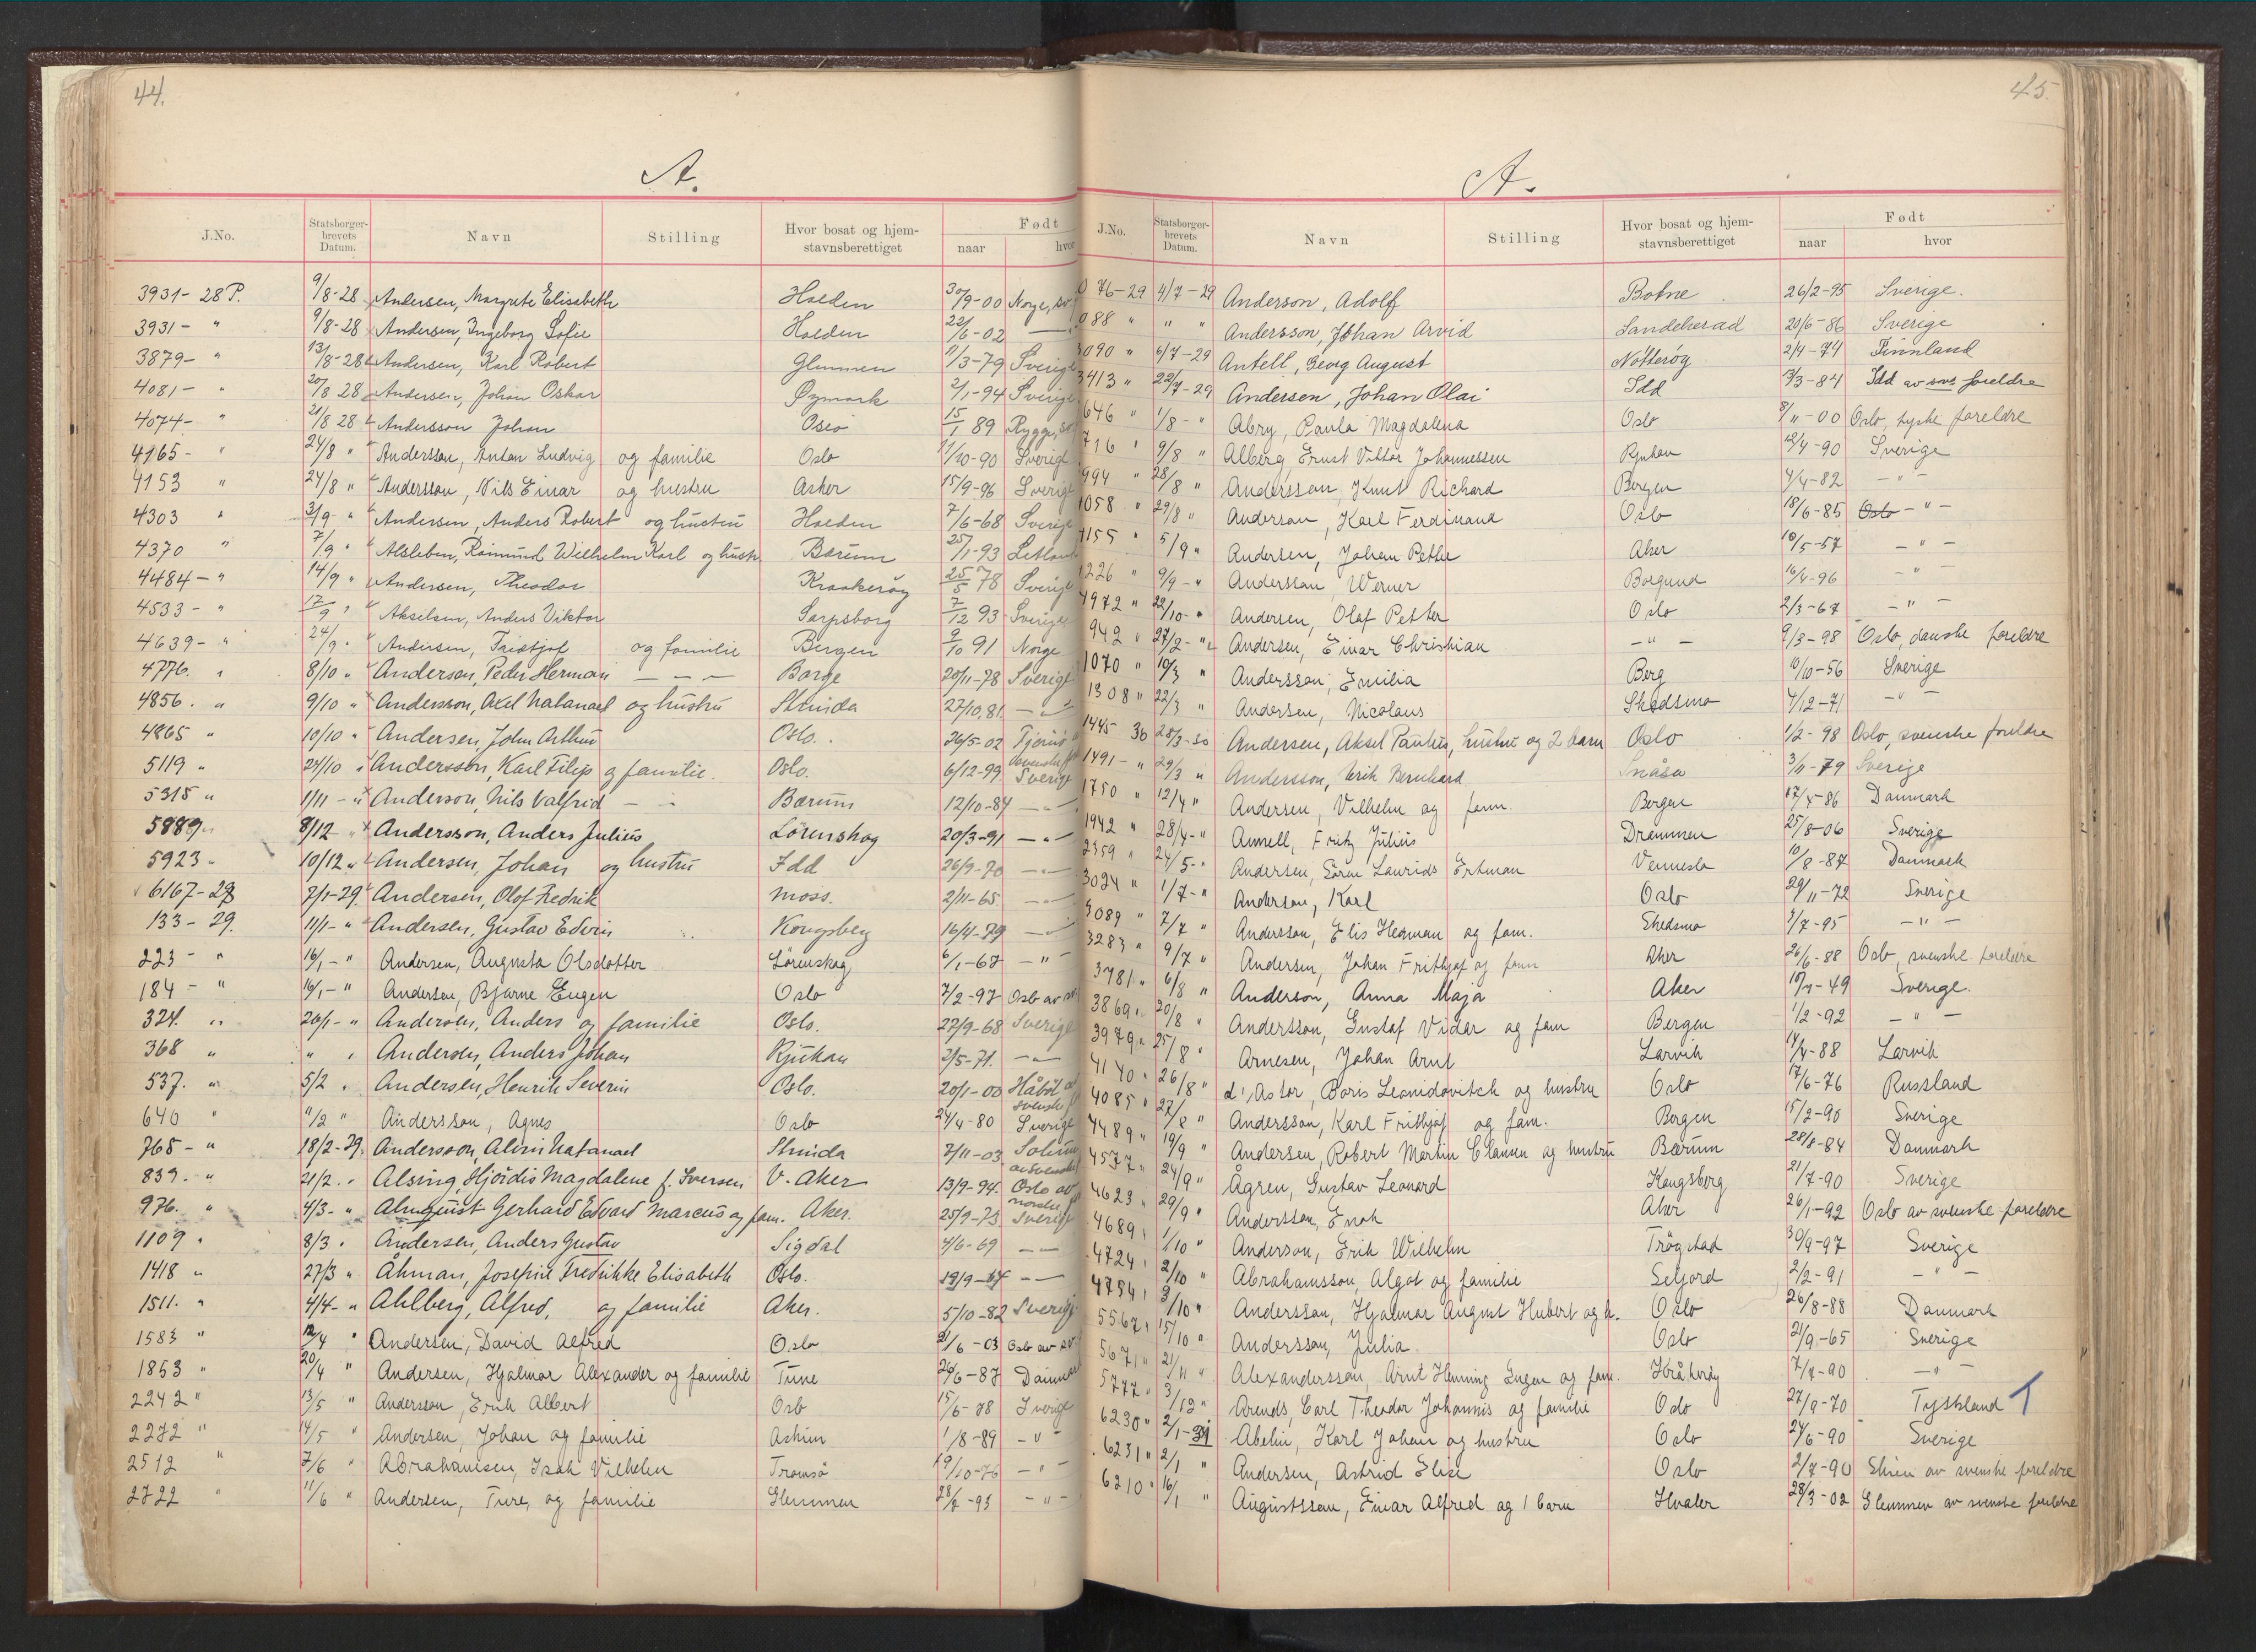 44.
A.
J.No. Statsborger-brevets Datum. Navn Stilling Hvor bosat og hjem-stavnsberettiget Født naar hvor
3931- 28 P. 9/8-28 Andersen, Margrete Elisabeth Halden 30/9-00 Norge, sv.
3931- " 9/8-28 Andersen, Ingeborg Sofie Halden 22/6-02 —
3879- " 13/8-28 Andersen, Karl Robert Glemmen 11/3-79 Sverige
4081- " 20/8 28 Andersen, Johan Oskar Øymark 2/1-94 Sverige
4074- " 21/8 28 Andersson Johan Oslo 15/1 89 Rygge, sv
4165- " 24/8 " Andersson, Anton Ludvig og familie Oslo 11/10-90 Sverige
4153 " 24/8 " Andersson, Nils Einar og hustru Asker 15/9-96 Sverige
4303 " 3/9 " Andersen, Anders Robert og hustru Halden 7/6-68 Sverige
4370 " 7/9 " Alsleben, Raimund Wilhelm Karl og hustr. Bærum 25/1-93 Letland
4484-" 14/9 " Andersen, Theodor Kraakerøy 25/5 78 Sverige
4533 - " 17/9 " Akselsen, Anders Viktor Sarpsborg 7/12 93 Sverige
4639- " 24/9 " Andersen, Fristjof og familie Bergen 9/10 91 Norge
4776. " 8/10 " Anderson, Peder Herman — — — Borge 20/11-78 Sverige
4856. " 9/10 " Andersson, Axel Natanael og hustru Strinda 27/10.81 — " —
4865 " 10/10 " Andersen, John Arthur Oslo. 26/5-02 svenske
5119 " 24/10 " Andersson, Karl Filip og familie. Oslo. 6/12-99 Sverige
5315 " 1/11 - " Anderson, Nils Valfrid — " — Bærum 12/10-84 — " —
5889 " 8/12 " Andersson, Anders Julius Lörenskog 20/3-91 — " —
5923 " 10/12 " Andersen, Johan og hustru Idd 26/9-70 — " —
6167-28 7/1-29 Andersen, Olof Fredrik Moss. 2/11-65 — " —
133 - 29. 11/1- " Andersen, Gustav Edvin Kongsberg 16/4-79 — " —
223 - " 16/1-" Andersen, Augusta Olsdotter Lörenskog 6/1-67 — " —
184 - " 16/1-" Andersen, Bjarne Eugen Oslo 7/2-97 Oslo av sv.
324. " 26/1- " Andersen, Anders og familie Oslo. 27/9-68 Sverige
368 " " " Andersen, Anders Johan Rjukan 2/5-71. — " —
537. " 5/2 " Andersen, Henrik Severin Oslo. 20/1-00 Håbøl av svenske f
640 " 11/2 " Andersson, Agnes Oslo 24/4-80 Sverige
768- " 18/2-29. Andersson, Alvin Natanael Strinda 7/11-03 av svenske
839. " 21/2. " Alsing, Hjördis Magdalene f. Iversen V. Aker 13/9-94. Oslo av norske
976. " 4/3- " Almquist Gerhard Edvard Marcus og fam. Aker. 25/9-73 Sverige
1109 " 8/3 " Andersen, Anders Gustav Sigdal 4/6-69 — " —
1418 " 27/3 " Åhman, Josefine Fredrikke Elisabeth Oslo. 19/9-67 — " —
1511. " 4/4- " Ahlberg, Alfred, og familie Aker. 5/10-82 Sverige
1583 " 12/4 " Andersen, David Alfred Oslo 21/6-03 Oslo av sv.
1853 " 20/4 " Andersen, Hjalmar Alexander og familie Tune 26/6-87 Danmark
2242 " 13/5 " Andersson, Erik Albert Oslo 15/6-78 Sverige
2272 " 14/5 " Andersen, Johan og familie Askim 1/8-89 — " —
2512 " 7/6 " Abrahamsen, Isak Vilhelm Tromsø 19/10-76 — " —
2722 " 11/6 " Andersen, Ture, og familie Glemmen 28/7-93 — " —
45.
A.
J.No. Statsborger-brevets Datum. Navn Stilling Hvor bosat og hjem-stavnsberettiget Født naar hvor
76-29 4/7-29 Anderson, Adolf Botne 26/2-95 Sverige.
088 " " " Andersson, Johan Arvid Sandeherad 20/6-86 Sverige
3090 " 6/7-29 Antell, Georg August Nötterøy 2/4-74 Finnland
3413 " 22/7-29 Andersen, Johan Olai Idd 13/3-84 Idd av sv. foreldre
646 " 1/8 - " Abry, Paula Magdalena Oslo 8/11-00 Oslo, tyske foreldre
716 " 9/8 " Alberg, Ernst Viktor Johannessen Rjukan 12/4-90 Sverige
994 " 28/8 " Anderssen, Knut Richard Bergen 4/4-82 — " —
1058 " 29/8 " Anderson, Karl Ferdinand Oslo 18/6-85 Oslo — " —
1155 " 5/9 " Andersen, Johan Petter Aker 10/5-57 — " —
1226 " 9/9-" Andersson, Werner Borgund 16/4-96 — " —
4972 " 22/10- " Andersen, Olaf Petter Oslo 2/3-67 — " —
942 " 27/2- " Andersen, Einar Christian — " — 9/3-98 Oslo, danske foreldre
1070 " 10/3 " Andersson, Emilia Berg 10/10-56 Sverige
1308 " 22/3 " Andersen, Nicolaus Skedsmo 4/12-71 — " —
1445 30 28/3-30 Andersen, Aksel Paulius, hustru og 2 barn Oslo 1/2-98 Oslo, svenske foreldre
1491 - " 29/3 " Andersson, Erik Bernhard Snåsa 3/11-79 Sverige
1750 " 12/4 " Andersen, Vilhelm og fam. Bergen 17/4-86 Danmark
1942 " 28/4-" Annell, Fritz Julius Drammen 25/8-06 Sverige
2359 " 24/5-" Andersen, Søren Laurids Ertman Vennesla 10/8-87 Danmark
3024 " 1/7-" Anderson, Karl Oslo 29/11-72 Sverige
3089 " 7/7 " Andersson, Elis Herman og fam. Skedsmo 3/7-95 — " —
3283 " 9/7 " Andersen, Johan Frithjof og fam Aker 26/6-88 Oslo, svenske foreldre
3781 " 6/8 " Anderson, Anna Maja Aker 10/4-49 Sverige.
3869 " 20/8 " Andersson, Gustaf Vidar og fam Bergen 1/2-92 — " —
3979 " 25/8 " Arnesen, Johan Arnt Larvik 14/4-88 Larvik
4140 " 26/8 " d'Astor, Boris Leonidovitch og hustru Oslo 17/6-76 Russland
4085 " 27/8 " Andersson, Karl Frithjof og fam. Bergen 15/2-90 Sverige
4489 " 19/9 " Andersen, Robert Martin Clausen og hustru Bærum 28/8-84 Danmark
4577 " 24/9 " Ågren, Gustav Leonard Kongsberg 21/7-90 Sverige
4623 " 29/9 " Andersson, Enok Aker 26/1-92 Oslo av svenske foreldre
4689 " 1/10 " Anderson, Erik Wilhelm Trögstad 30/9-97 Sverige
4724 " 2/10 " Abrahamsson, Algot og familie Seljord 2/2-91 — " —
4754 " 3/10 " Andersson, Hjalmar August Hubert og h. Oslo 26/8-88 Danmark
5567 " 15/10 " Andersson, Julia Oslo 21/9-65 Sverige
5671 " 21/11 " Alexandersson, Arnt Henning Eugen og fam. Kråkerøy 7/4-90 — " —
5777 " 3/12 " Arends, Carl Theodor Johannis og familie Oslo 27/9-70 Tyskland T
6230 " 2/1-31 Abelin, Karl Johan og hustru Oslo 24/6-90 Sverige
6231 " 2/1 " Andersen, Astrid Elise Oslo 2/7-90 Skien av svenske foreldre
6210 " 16/1 " Augustsson, Einar Alfred og 1 barn Hvaler 28/3-02 Glemmen av svenske foreldre